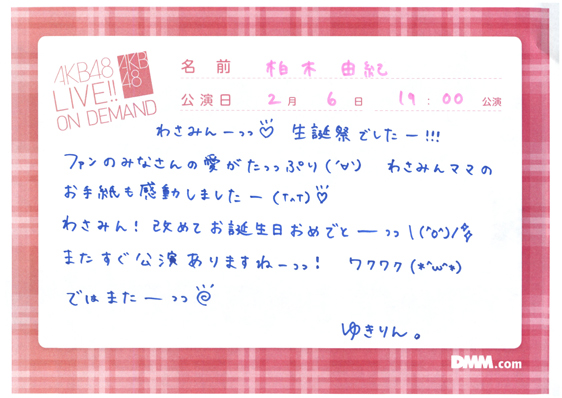 AKB48
LIVE!!
ON DEMAND
AKB
48
名前 柏木 由紀
公演日 2月 6日 19:00 公演
わさみんーっっ♡ 生誕祭でしたー!!!
ファンのみなさんの愛がたっっぷり(´∀`) わさみんママの
お手紙も感動しましたー(T^T)♡
わさみん! 改めてお誕生日おめでとーっっ\(^o^)/
またすぐ公演ありますねーっっ! ワクワク(*^w^*)
ではまたーっっ
ゆきりん。
DMM.com